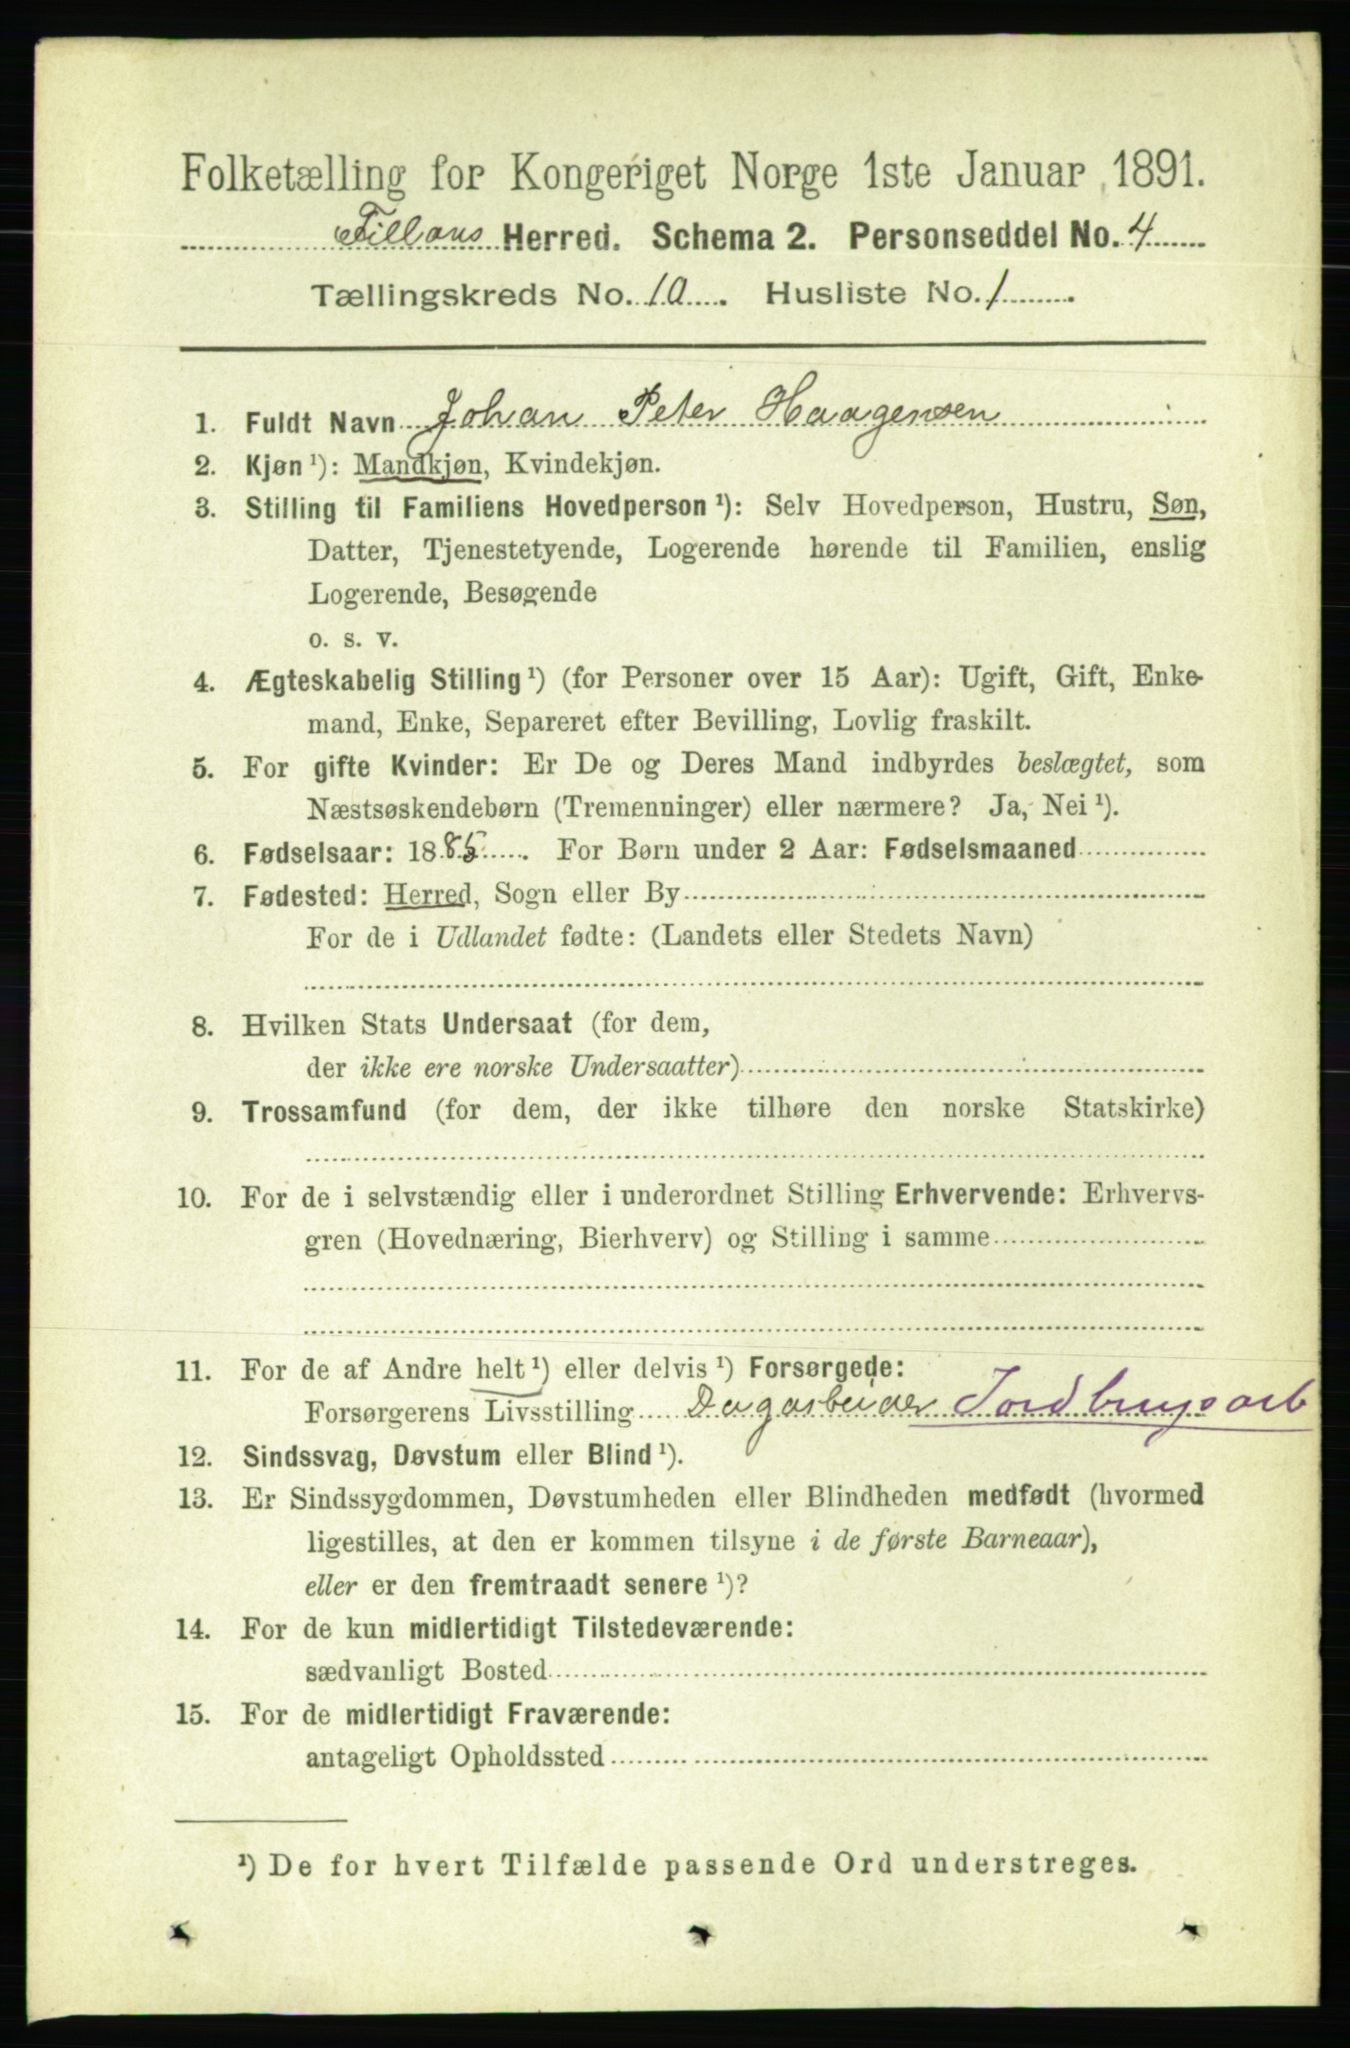 Folketælling for Kongeriget Norge 1ste Januar 1891.
Fillans Herred. Schema 2. Personseddel No. 4
Tællingskreds No. 10. Husliste No. 1
1. Fuldt Navn Johan Peter Haagensen
2. Kjøn ¹): Mandkjøn, Kvindekjøn.
3. Stilling til Familiens Hovedperson ¹): Selv Hovedperson, Hustru, Søn,
Datter, Tjenestetyende, Logerende hørende til Familien, enslig
Logerende, Besøgende
o. s. v.
4. Ægteskabelig Stilling ¹) (for Personer over 15 Aar): Ugift, Gift, Enke-
mand, Enke, Separeret efter Bevilling, Lovlig fraskilt.
5. For gifte Kvinder: Er De og Deres Mand indbyrdes beslægtet, som
Næstsøskendebørn (Tremenninger) eller nærmere? Ja, Nei ¹).
6. Fødselsaar: 1885. For Børn under 2 Aar: Fødselsmaaned
7. Fødested: Herred, Sogn eller By
For de i Udlandet fødte: (Landets eller Stedets Navn)
8. Hvilken Stats Undersaat (for dem,
der ikke ere norske Undersaatter)
9. Trossamfund (for dem, der ikke tilhøre den norske Statskirke)
10. For de i selvstændig eller i underordnet Stilling Erhvervende: Erhvervs-
gren (Hovednæring, Bierhverv) og Stilling i samme
11. For de af Andre helt ¹) eller delvis ¹) Forsørgede:
Forsørgerens Livsstilling Dagarbeider Jordbrugsarb
12. Sindssvag, Døvstum eller Blind ¹).
13. Er Sindssygdommen, Døvstumheden eller Blindheden medfødt (hvormed
ligestilles, at den er kommen tilsyne i de første Barneaar),
eller er den fremtraadt senere ¹)?
14. For de kun midlertidigt Tilstedeværende:
sædvanligt Bosted
15. For de midlertidigt Fraværende:
antageligt Opholdssted
¹) De for hvert Tilfælde passende Ord understreges.